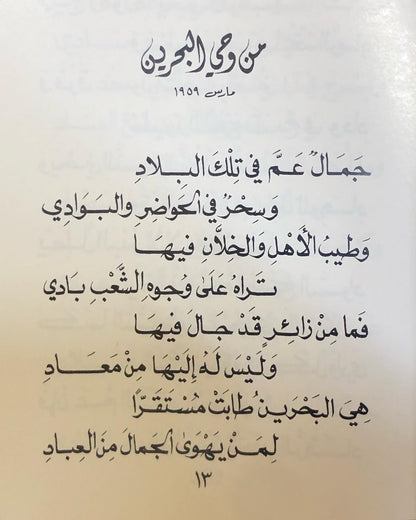 من وحي البحرين
مارس ١٩٥٩
جَمَالٌ عَمَّ في تِلْكَ البِلادِ
وَسِحْرٌ في الحَواضرِ والبَوَادِي
وَطِيبُ الأَهْلِ وَالخِلاَّنِ فِيهَا
تَراهُ عَلَى وُجوهِ الشَّعْبِ بَادي
فَما مِنْ زائِرٍ قَدْ جَالَ فِيهَا
وَلَيْس لَهُ إِليْهَا مِنْ مَعَادِ
هِيَ البَحْرَين طابَتْ مُسْتَقَرًّا
لِمَنْ يَهْوَى الجَمالَ مِنَ العِبادِ
١٣